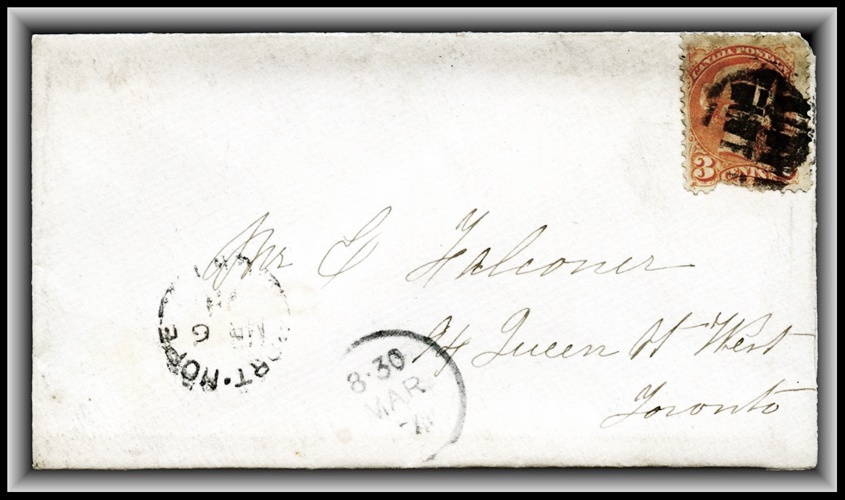 CANADA POSTAGE
3 CENTS
Mr C Falconer
94 Queen St West
Toronto
PORT·HOPE
MR 6
8·30
MAR